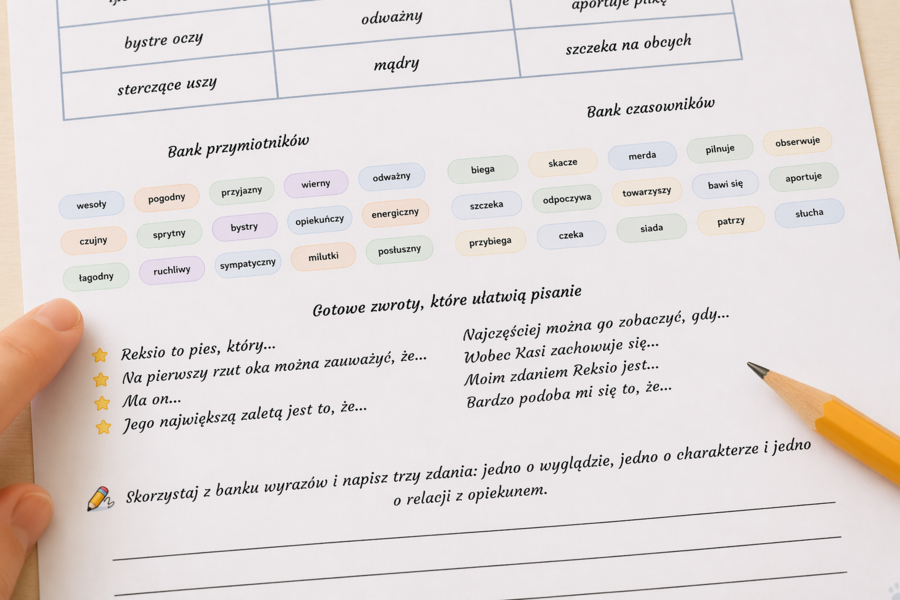 bystre oczy
odważny
aportuje piłkę
sterczące uszy
mądry
szczeka na obcych
Bank przymiotników
wesoły pogodny przyjazny wierny odważny
czujny sprytny bystry opiekuńczy energiczny
łagodny ruchliwy sympatyczny milutki posłuszny
Bank czasowników
biega skacze merda pilnuje obserwuje
szczeka odpoczywa towarzyszy bawi się aportuje
przybiega czeka siada patrzy słucha
Gotowe zwroty, które ułatwią pisanie
Reksio to pies, który...
Na pierwszy rzut oka można zauważyć, że...
Ma on...
Jego największą zaletą jest to, że...
Najczęściej można go zobaczyć, gdy...
Wobec Kasi zachowuje się...
Moim zdaniem Reksio jest...
Bardzo podoba mi się to, że...
Skorzystaj z banku wyrazów i napisz trzy zdania: jedno o wyglądzie, jedno o charakterze i jedno
o relacji z opiekunem.